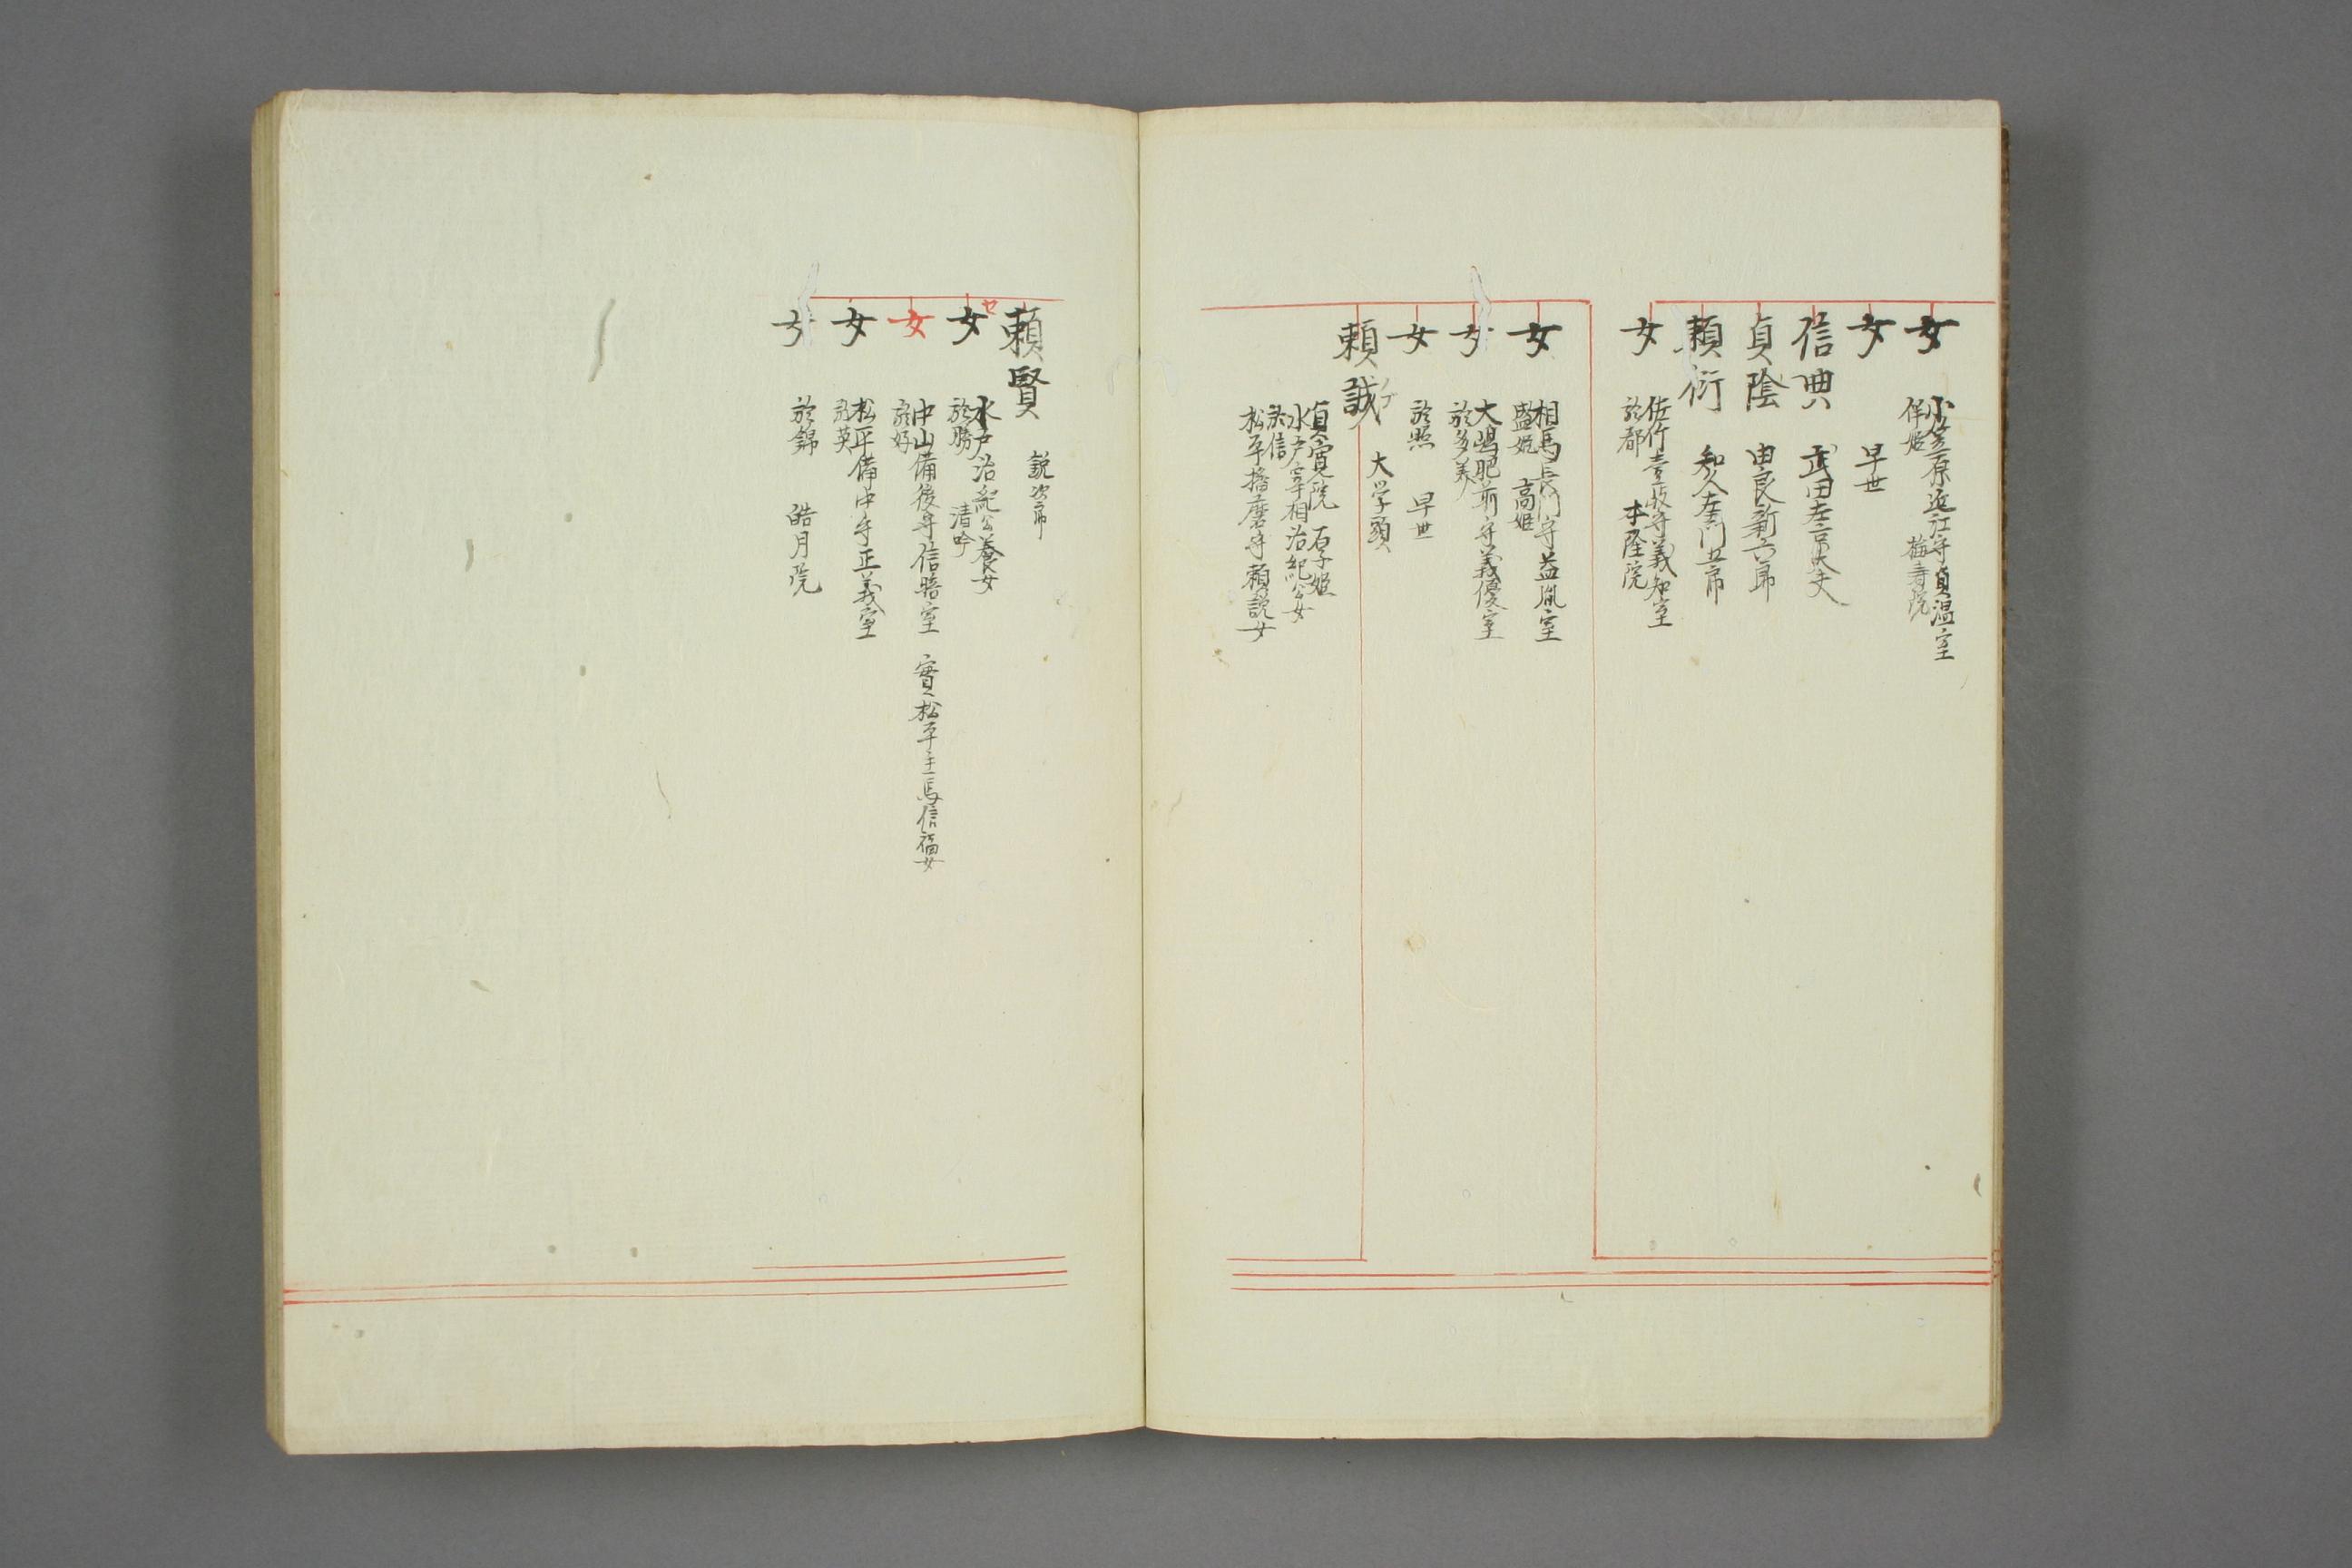 女
小笠原近江守貞温室
伴姫 梅寿院
女
早世
信典
武田左京大夫
貞陰
由良新六郎
頼衍
知久左衛門五郎
女
佐竹壹岐守義知室
於都 本隆院
女
相馬長門守益胤室
盛姫 高姫
女
大嶋肥前守義優室
於多美
女
於照 早世
頼誠
ノブ
大学頭
貞寛院 石子姫
水戸宰相治紀公女
於信
松平播磨守頼説女
頼賢
説次郎
セ
女
水戸治紀公養女
於勝 清吟
女
中山備後守信晧室 實松平主馬信福女
於好
女
松平備中守正義室
於英
女
於錦 皓月院